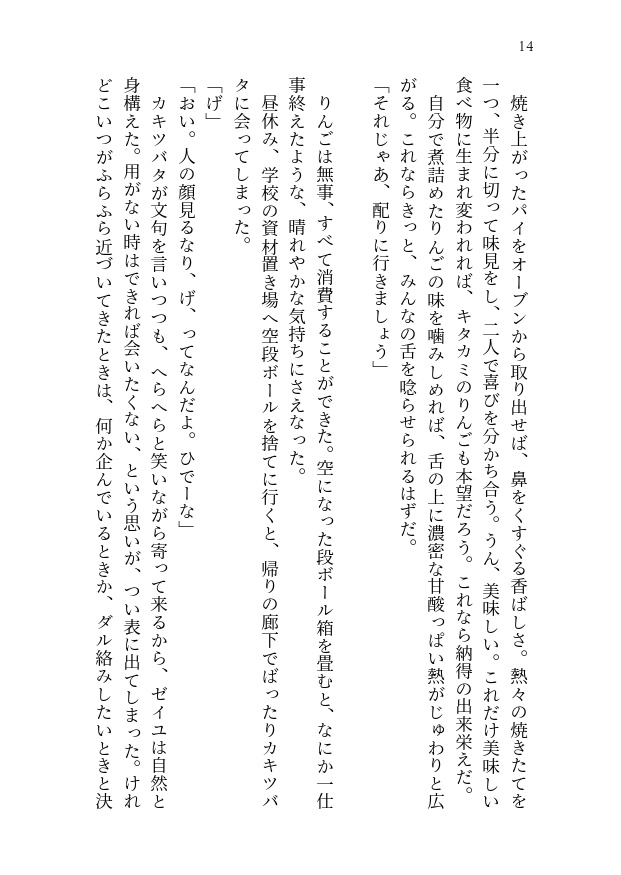 14
　焼き上がったパイをオーブンから取り出せば、鼻をくすぐる香ばしさ。熱々の焼きたてを
一つ、半分に切って味見をし、二人で喜びを分かち合う。うん、美味しい。これだけ美味しい
食べ物に生まれ変われれば、キタカミのりんごも本望だろう。これなら納得の出来栄えだ。
　自分で煮詰めたりんごの味を噛みしめれば、舌の上に濃密な甘酸っぱい熱がじゅわりと広
がる。これならきっと、みんなの舌を唸らせられるはずだ。
「それじゃあ、配りに行きましょう」
　りんごは無事、すべて消費することができた。空になった段ボール箱を畳むと、なにか一仕
事終えたような、晴れやかな気持ちにさえなった。
　昼休み、学校の資材置き場へ空段ボールを捨てに行くと、帰りの廊下でばったりカキツバ
タに会ってしまった。
「げ」
「おい。人の顔見るなり、げ、ってなんだよ。ひでーな」
　カキツバタが文句を言いつつも、へらへらと笑いながら寄って来るから、ゼイユは自然と
身構えた。用がない時はできれば会いたくない、という思いが、つい表に出てしまった。けれ
どこいつがふらふら近づいてきたときは、何か企んでいるときか、ダル絡みしたいときと決